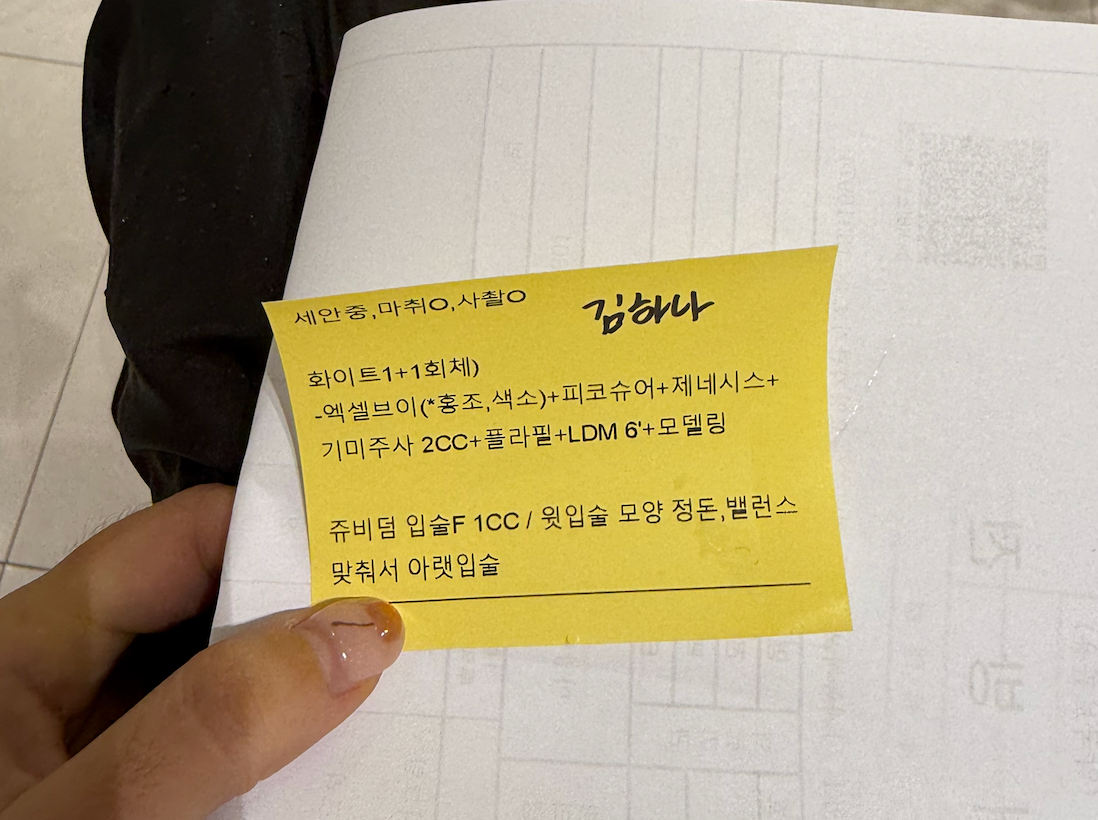 세안중,마취O,사촬O
김하나
화이트1+1회체)
-엑셀브이(*홍조,색소)+피코슈어+제네시스+
기미주사 2CC+플라필+LDM 6'+모델링
쥬비덤 입술F 1CC / 윗입술 모양 정돈,밸런스
맞춰서 아랫입술